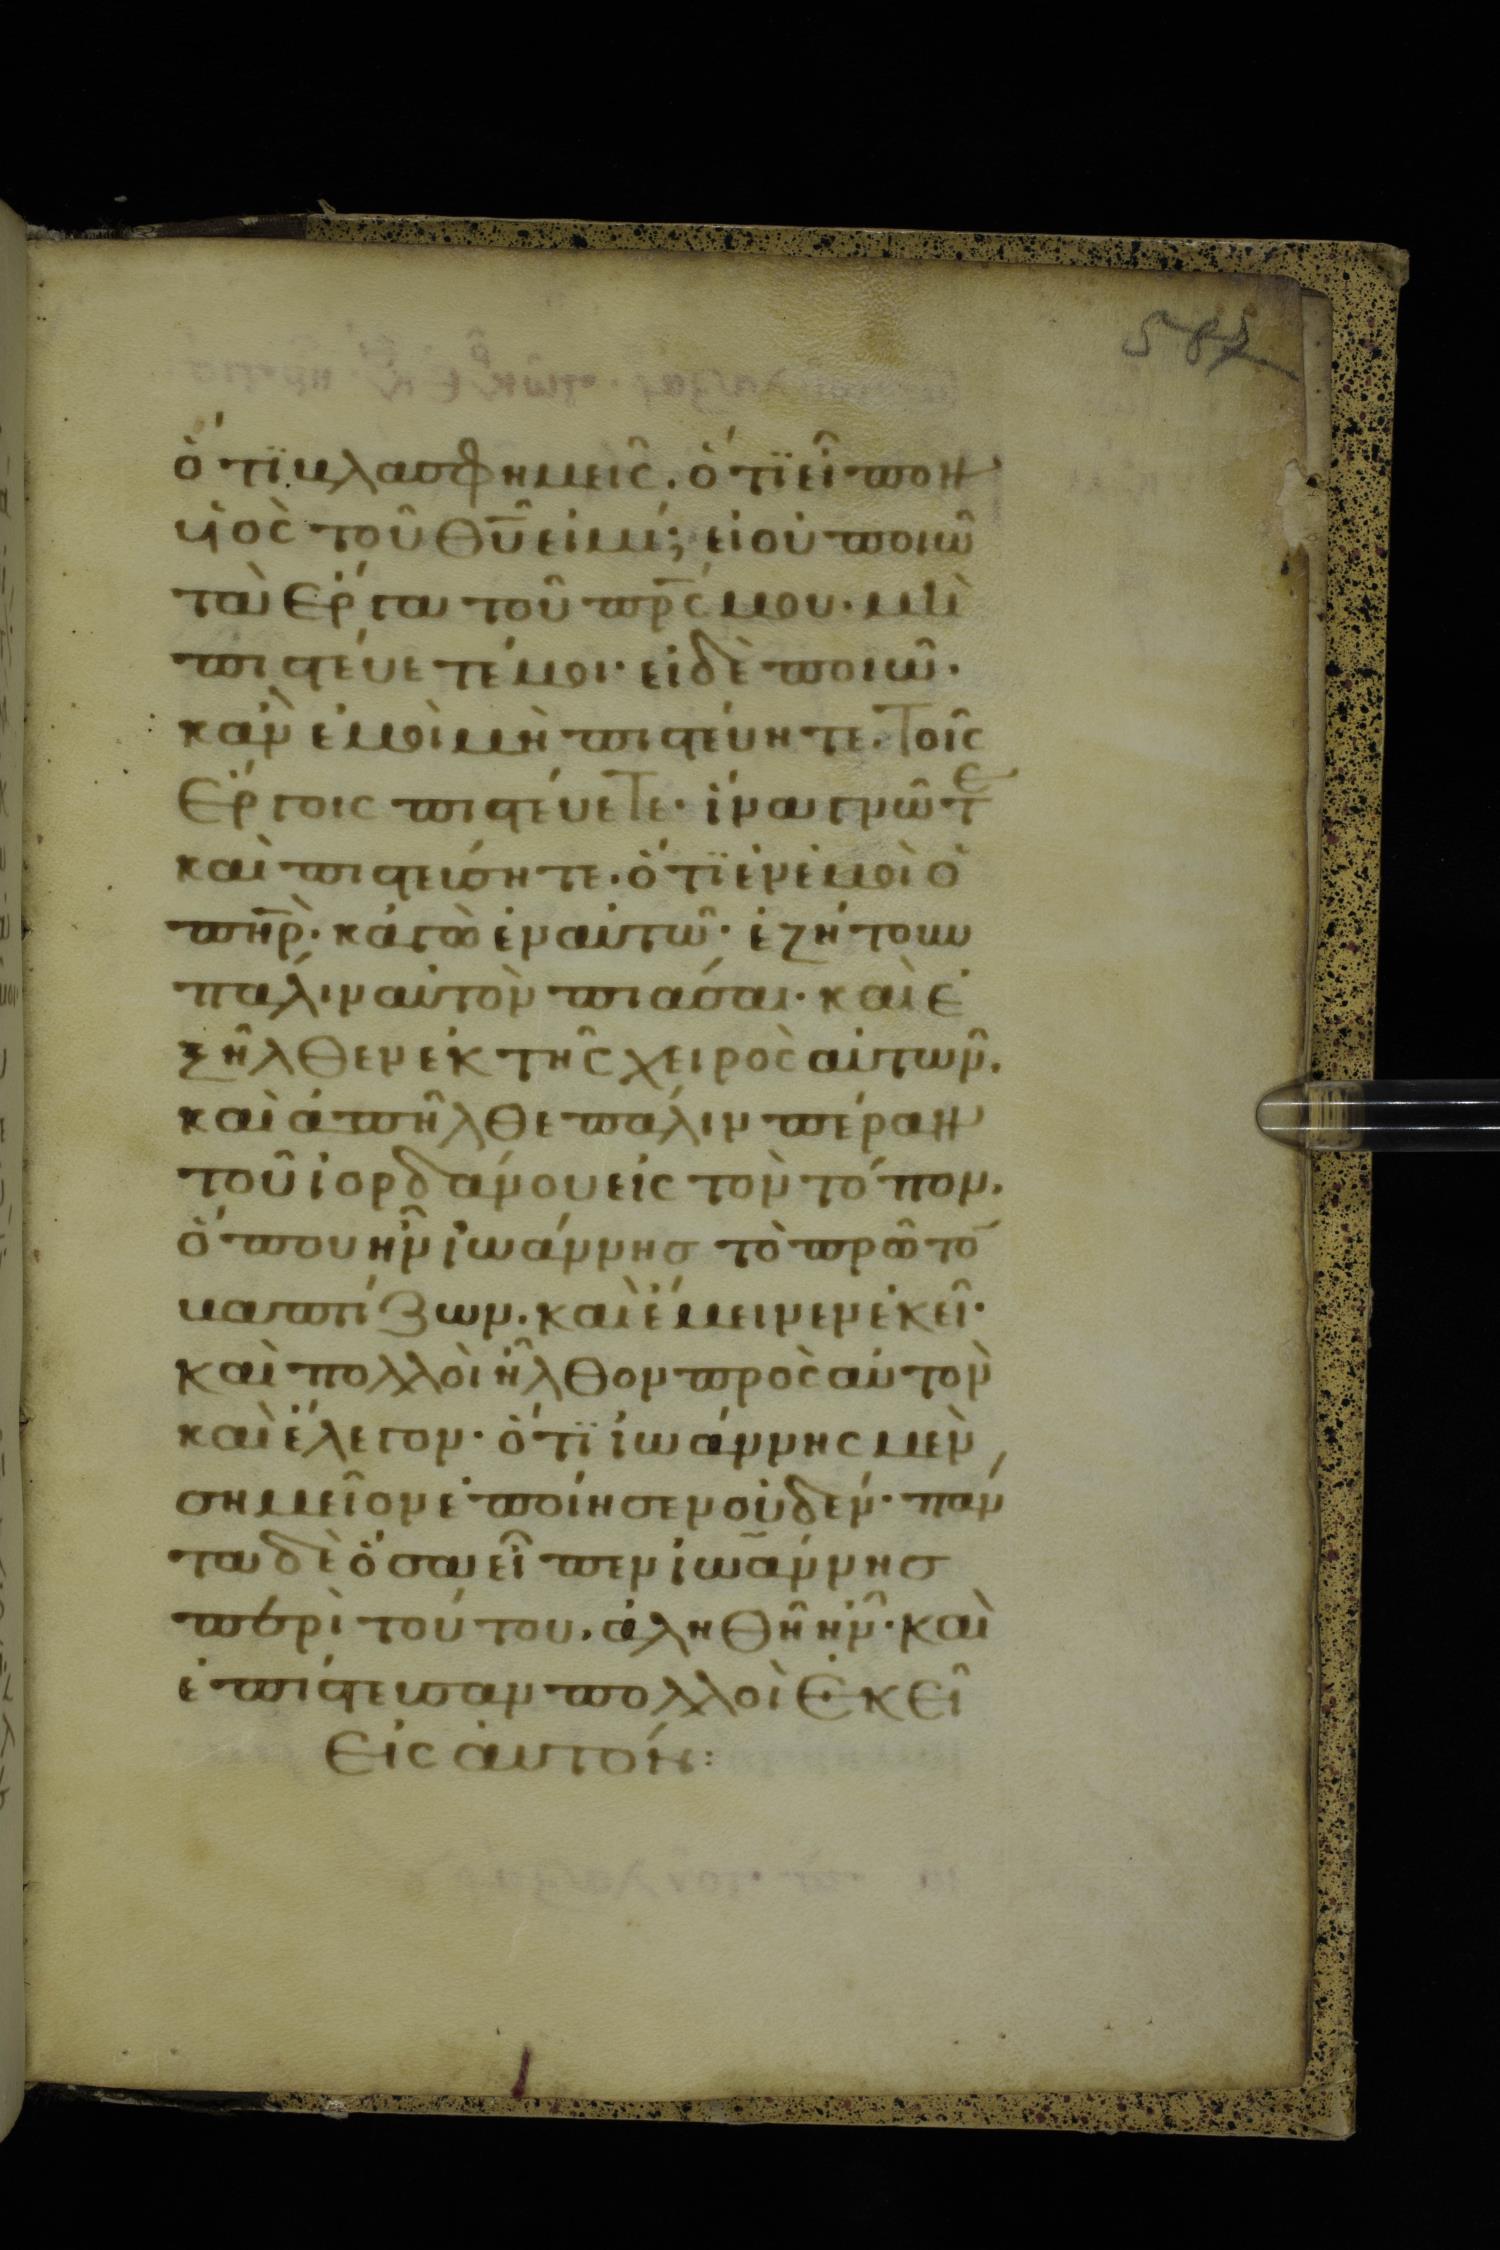 ὅτϊ βλασφημεῖς. ὅτϊ εἶπον
υἱὸς τοῦ θῦ εἰμί; εἰ οὐ ποιῶ
τὰ ἔργα τοῦ πρς μου. μὴ
πιστεύετέ μοι· εἰ δὲ ποιῶ·
κἂν ἐμοὶ μὴ πιστεύητε. τοῖς
ἔργοις πιστεύετε· ἵνα γνῶτε
καὶ πιστεύσητε. ὅτϊ ἐν ἐμοὶ ὁ
πηρ· κἀγὼ ἐν αὐτῶ· ἐζήτουν
πάλιν αὐτὸν πιάσαι· καὶ ἐ
ξῆλθεν ἐκ τῆς χειρὸς αὐτῶν.
καὶ ἀπῆλθε πάλιν πέραν
τοῦ ἰορδάνου εἰς τὸν τόπον.
ὅπου ἦν ἰωάννησ τὸ πρῶτο
βαπτίζων. καὶ ἔμεινεν ἐκεῖ·
καὶ πολλοὶ ἦλθον πρὸς αὐτὸν
καὶ ἔλεγον· ὅτϊ ἰωάννης μὲν
σημεῖον ἐποίησεν οὐδέν· πάν
τα δὲ ὅσα εἶπεν ἰωάννησ
περὶ τούτου. ἀληθῆ ἦν· καὶ
ἐπίστευσαν πολλοὶ ἐκεῖ
εἰς αὐτόν: